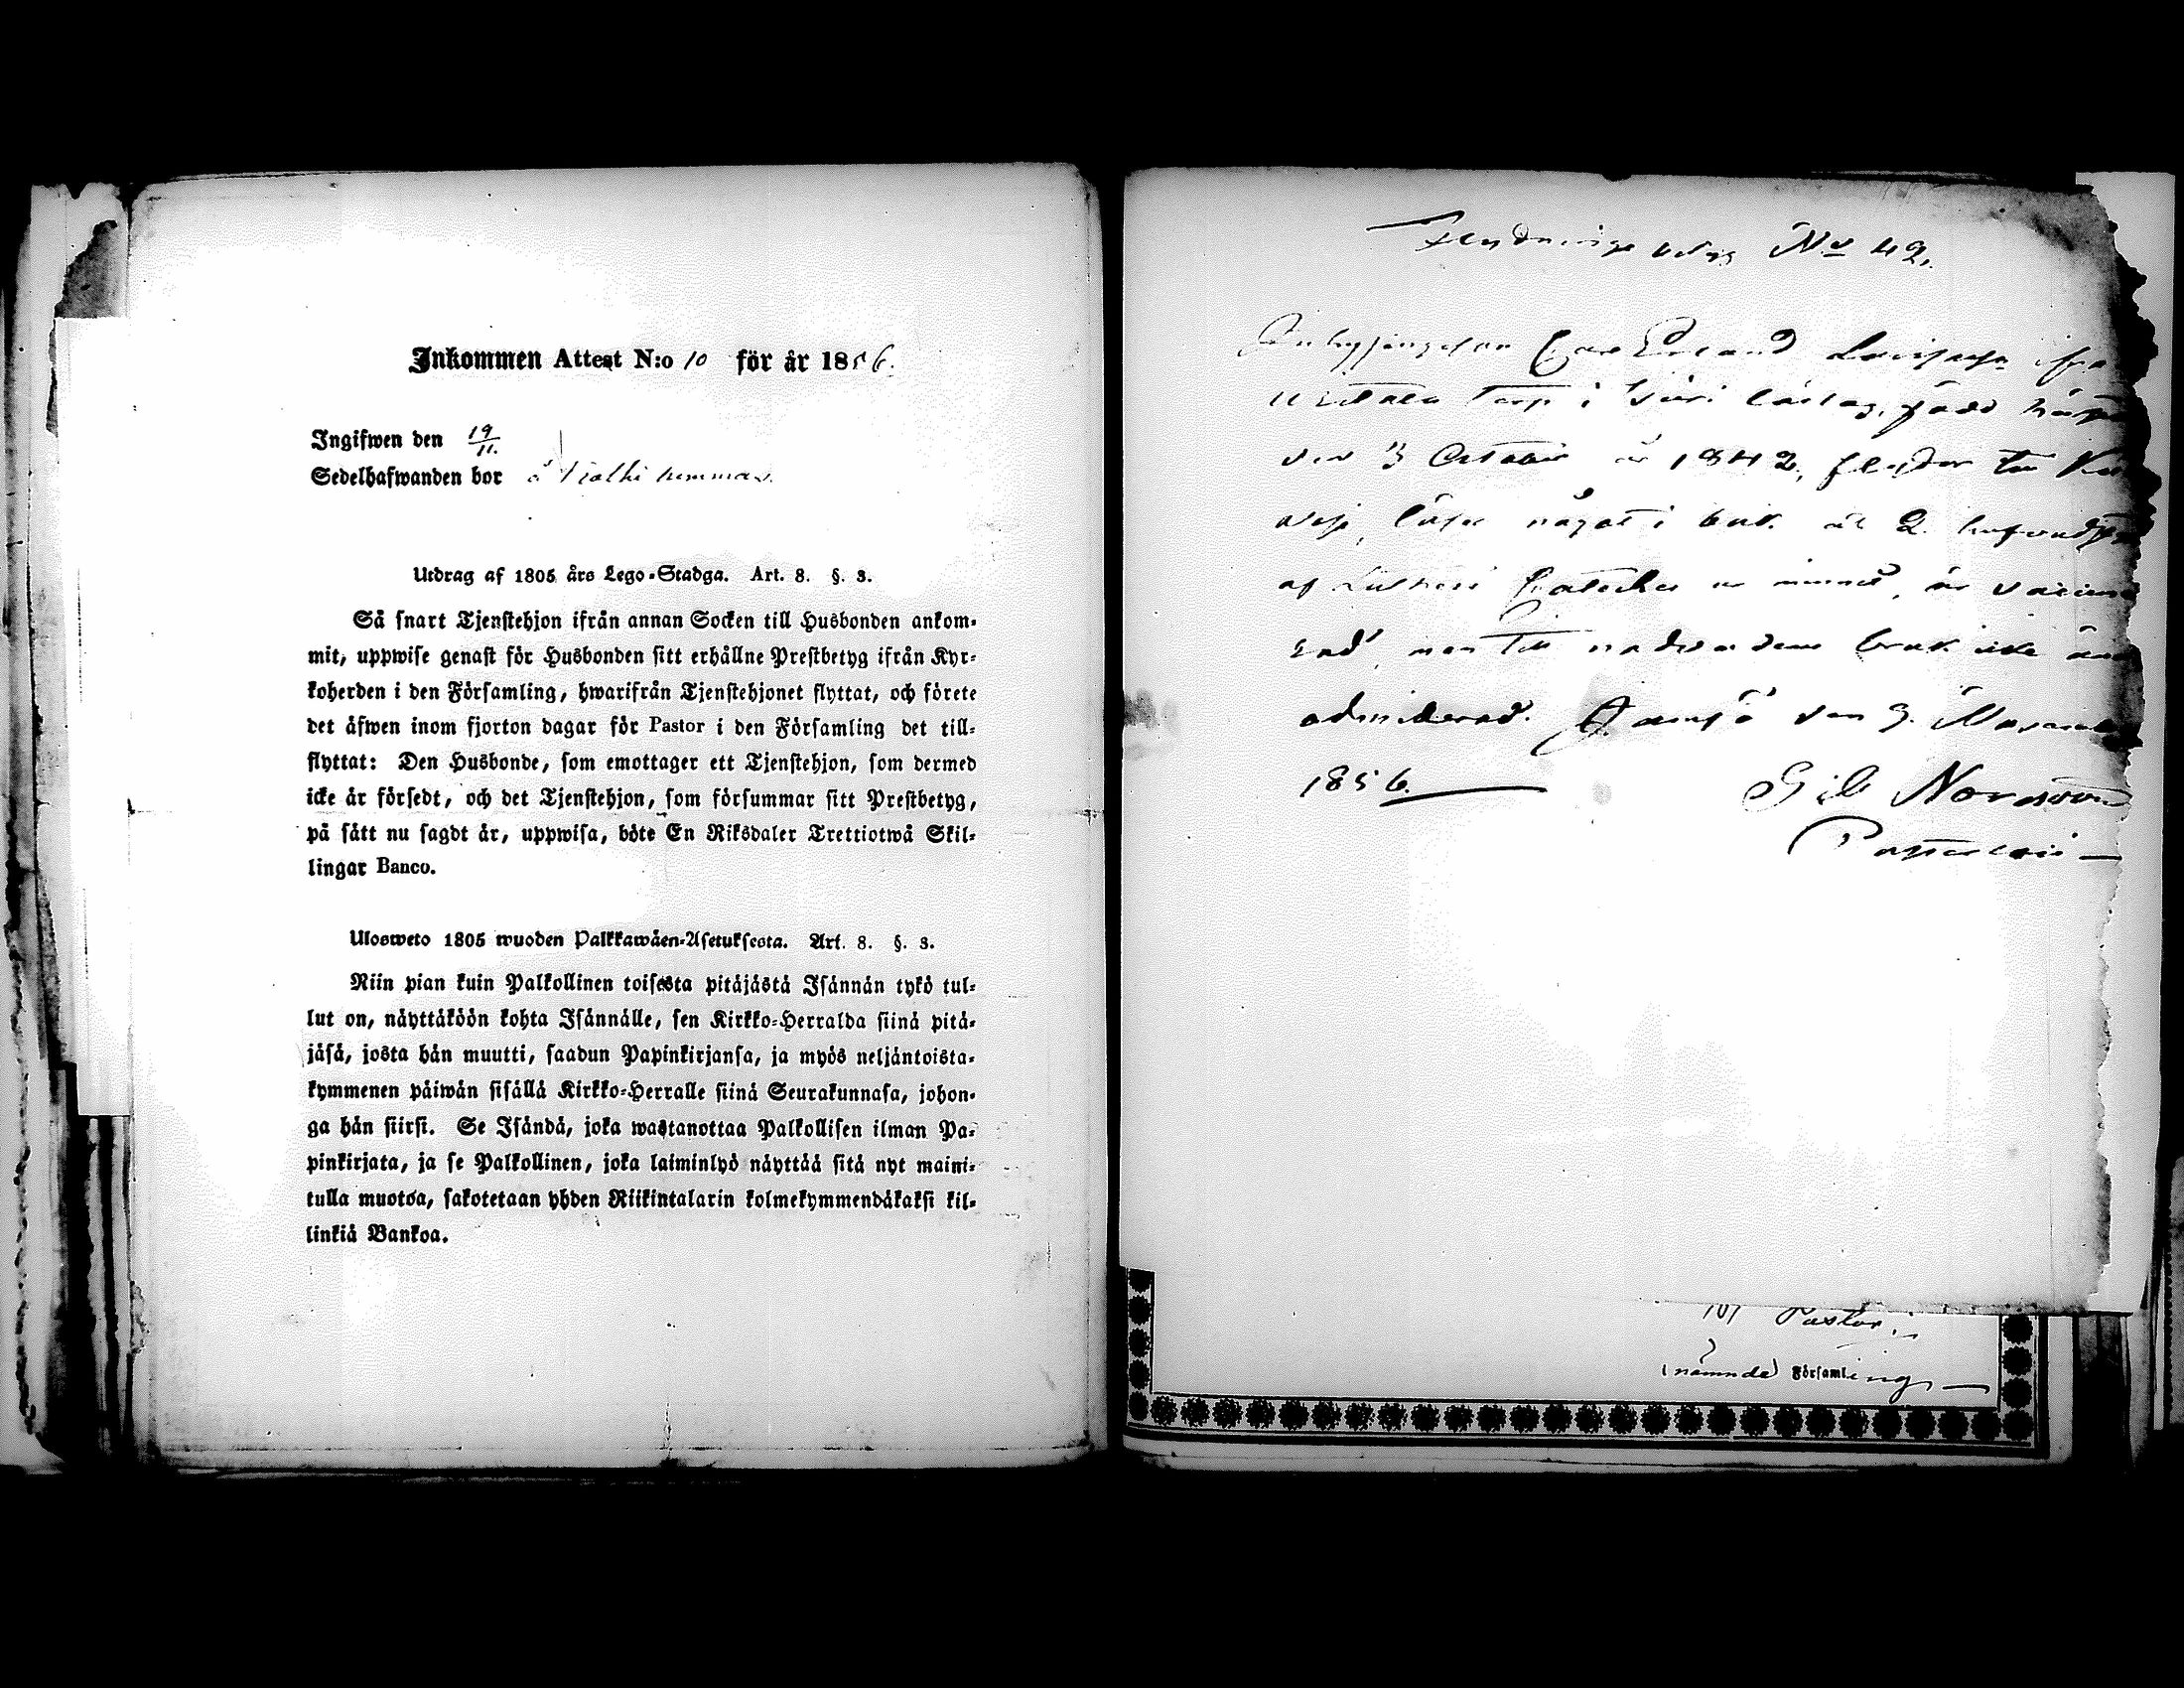 Inkommen Attest N:o 10 för år 1856.
Ingifwen den 19/11.
Sedelhafwanden bor å
Utdrag af 1805 års Lego-Stadga. Art. 8. §. 3.
Så snart Tjenstehjon ifrån annan Socken till Husbonden ankom-
mit, uppwise genast för Husbonden sitt erhållne Prestbetyg ifrån Kyr-
koherden i den Församling, hwarifrån Tjenstehjonet flyttat, och förete
det äfwen inom fjorton dagar för Pastor i den Församling det till-
flyttat: Den Husbonde, som emottager ett Tjenstehjon, som dermed
icke är försedt, och det Tjenstehjon, som försummar sitt Prestbetyg,
på sätt nu sagdt är, uppwisa, böte En Riksdaler Trettiotwå Skil-
lingar Banco.
Ulosweto 1805 wuoden Palkkawäen-Asetuksesta. Art. 8. §. 3.
Niin pian kuin Palkollinen toisesta pitäjästä Isännän tykö tul-
lut on, näyttäköön kohta Isännälle, sen Kirkko-Herralda siinä pitä-
jäsä, josta hän muutti, saadun Papinkirjansa, ja myös neljäntoista-
kymmenen päiwän sisällä Kirkko-Herralle siinä Seurakunnasa, johon-
ga hän siirsi. Se Isändä, joka wastanottaa Palkollisen ilman Pa-
pinkirjata, ja se Palkollinen, joka laiminlyö näyttää sitä nyt maini-
tulla muotoa, sakotetaan yhden Riikintalarin kolmekymmendäkaksi kil-
linkiä Bankoa.
Flyttnings betyg No 42.
Lovisason
torp i född
den 3 October år 1842, flyttar till
läser något i bok
af Lutheri Cateches ur minnet, är vaccine-
rad, men till nattvardens bruk icke
admitterad. Jämsä den 9 November
1856.
Past
Pastor i
nämnde Församling